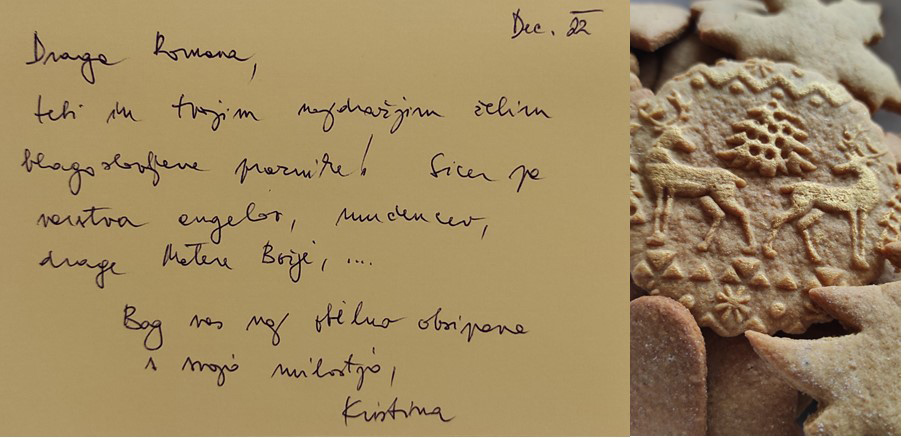 Dec. 22
Draga Romana,
tebi in tvojim najdražjim želim
blagoslovljene praznike! Sicer pa
varstva angelov, mučencev,
drage Matere Božje, ....
Bog vas naj obilno obsipava
s svojo milostjo,
Kristina